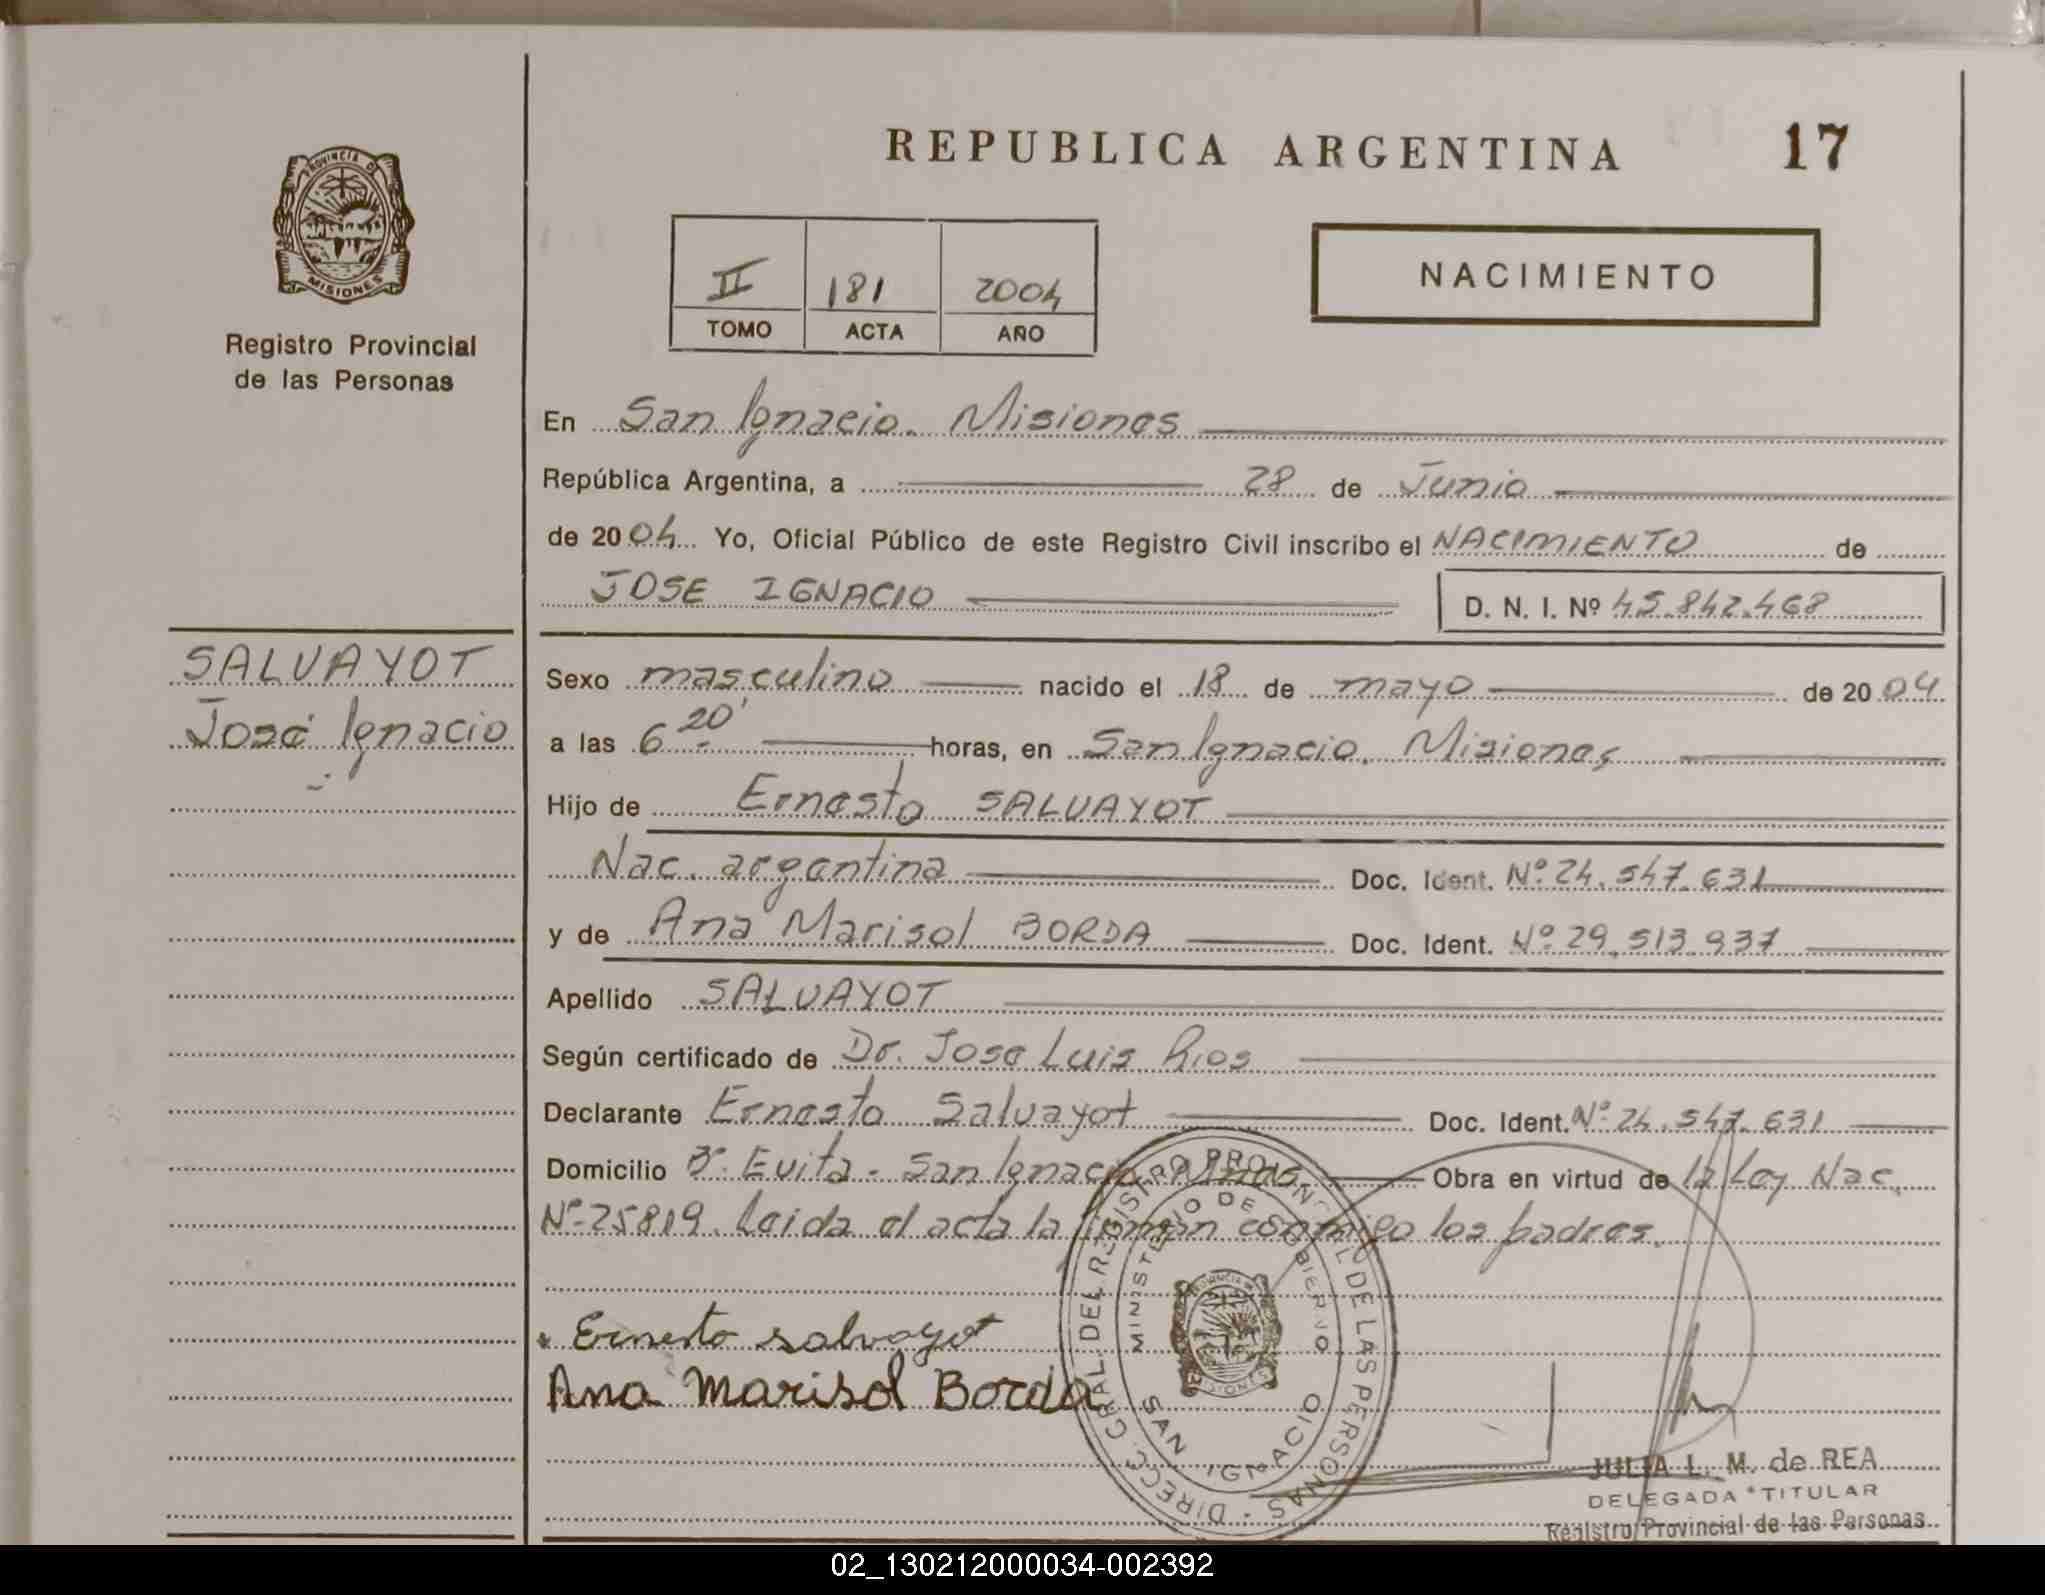 REPUBLICA ARGENTINA 17
PROVINCIA DE
MISIONES
Registro Provincial
de las Personas
II 181 2004
TOMO ACTA AÑO
NACIMIENTO
En San Ignacio. Misiones
República Argentina, a 28 de Junio
de 2004 Yo, Oficial Público de este Registro Civil inscribo el NACIMIENTO de
JOSE IGNACIO D. N. I. Nº 45.842.468
SALVAYOT
José Ignacio
Sexo masculino nacido el 18 de mayo de 2004
a las 6 20' horas, en San Ignacio. Misiones
Hijo de Ernesto SALVAYOT
Nac. argentina Doc. Ident. Nº 24.547.631
y de Ana Marisol BORDA Doc. Ident. Nº 29.513.937
Apellido SALVAYOT
Según certificado de Dr. Jose Luis Rios
Declarante Ernesto Salvayot Doc. Ident. Nº 24.547.631
Domicilio Bº Evita - San Ignacio Mnes. Obra en virtud de la Ley Nac.
Nº 25819. Leida el acta la firman conmigo los padres.
Ernesto salvayot
Ana Marisol Borda
DIRECC. GRAL. DEL REGISTRO PROVINCIAL DE LAS PERSONAS
MINISTERIO DE GOBIERNO
PROVINCIA
MISIONES
SAN IGNACIO
JULIA L. M. de REA
DELEGADA TITULAR
Registro Provincial de las Personas
02_130212000034-002392